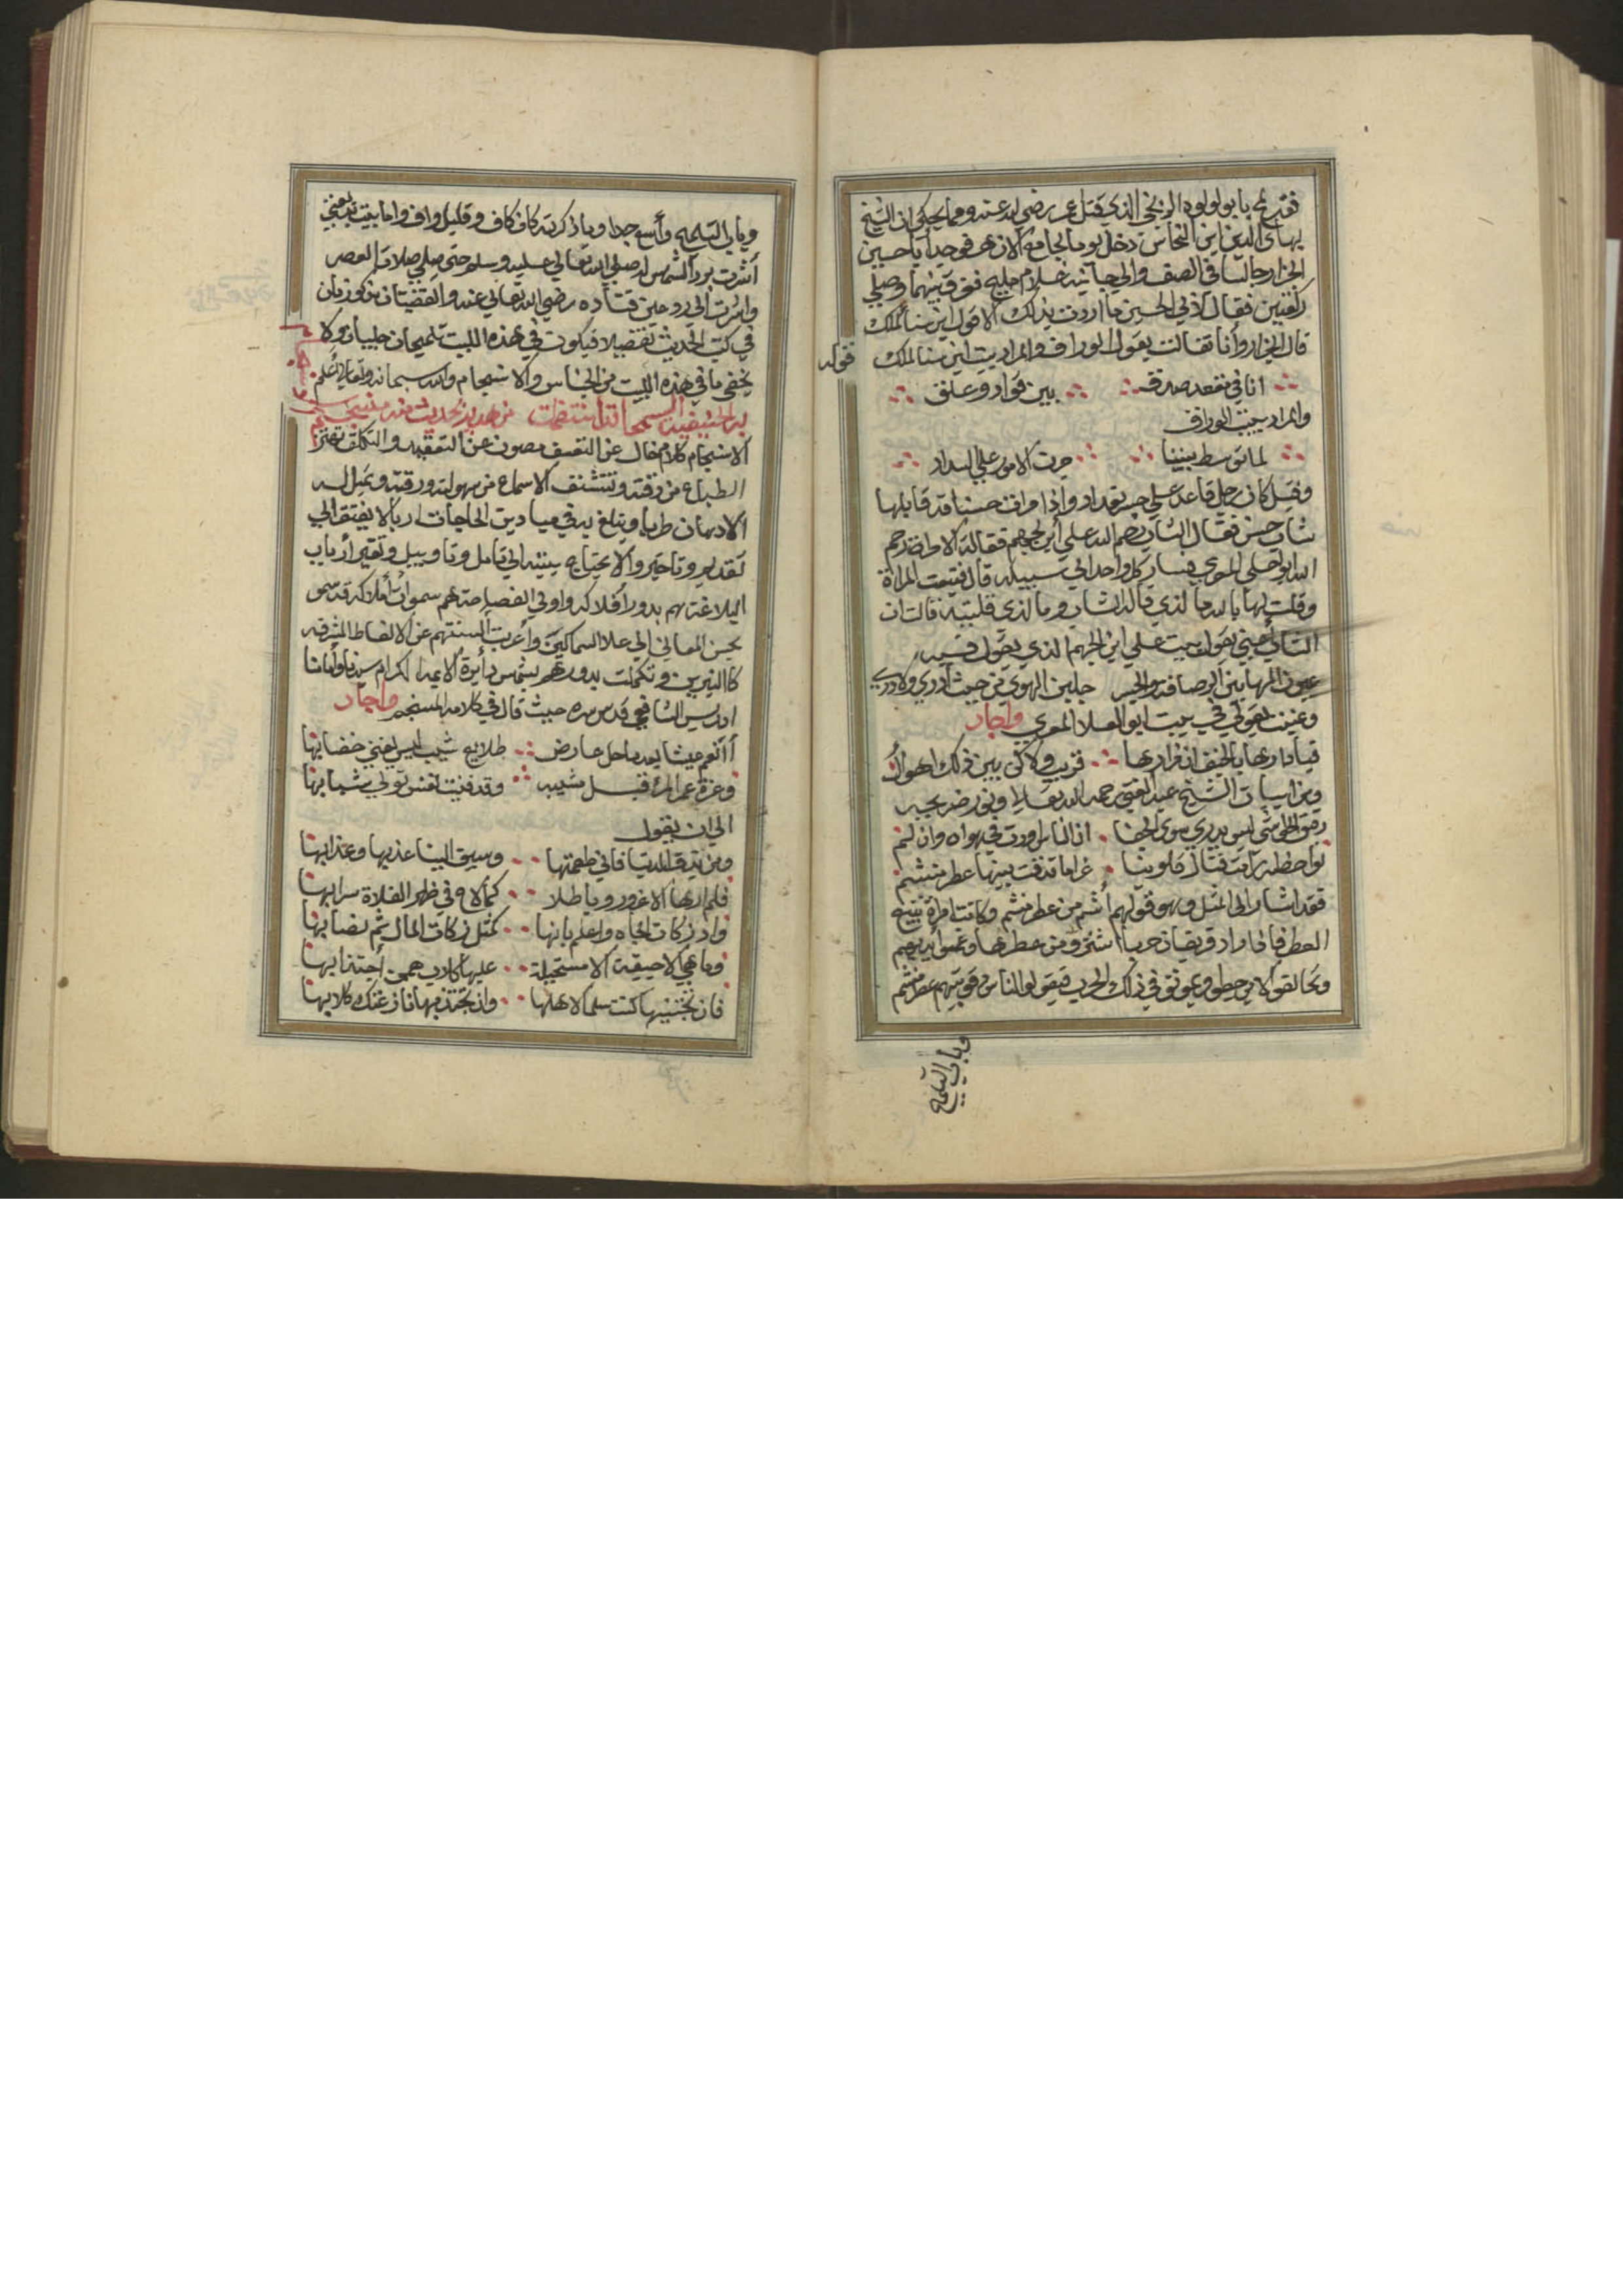 الذي قتل عمر رضي الله عنه ومما يحكى ان الشيخ
بهاى الدين ابن النحاس دخل يوما الجامع الازهر فوجد ابا حسين
الجزار جالسا في الصف والى جانبه غلام مليح ففرق بينهما وصلى
ركعتين فقال لابي الحسين ما اردت بذلك الا قول ابن سنا الملك
قال الجزار وأنا تفالت بقول الوراق والمراد بيت ابن سنا الملك
قوله
انا في مقعد صدق بين قواد وعلق
والمراد ببيت الوراق
لما توسط بيننا جرت الامور على السداد
وقيل كان رجل قاعد على جسر بغداد واذا مراة حسنا قد قابلها
شاب حسن فقال الشاب رحم الله علي أبن الجهم فقالة الامراة رحم
الله ابو العلى المعري فسار كل واحد الى سبيله قال فتبعت المراة
وقلت لها بالله ما لذي قال الشاب وما لذي قلتيه قالت ان
الشاب أعني بقوله بيت علي ابن الجهم الذي يقول فيه
عيون المها بين الرصافة والجسر جلبن الهوى من حيث أدري ولا أدري
وعنيت بقولي في بيت ابو العلا المعري واجاد
فيا دارها بالخيف ان مزارها قريب ولاكن بين ذلك اهوال
ومن ابيات الشيخ عبد الغني رحمه الله تعالا وفي رضه بحبه
سوى الجفا اذا الناس ودت في هواه وان لم
لواحظه رامت قتال قلوبنا غراما فدقت بينها عطر منشم
فقد اشار الى المثل وهو قولهم أشئم من عطر منشم وكانت امراة تبيع
العطر فاذا اراد فريقان حربا اشتروا من عطرها وغمسوا أيديهم
وتحالفوا في ذلك الحرب فيقولوا الناس دقو بينهم عطر منشم
وباب التلميح
وباب التلميح وأسع جدا وما ذكرته كاف كاف وقليل واف واما بيت بديعتي
أشرت برد الشمس له صلى الله تعالى عليه وسلم حتى صلى صلاة العصر
واشرت الى رد عين قتاده رضي الله تعالى عنه والقضيتان مذكورتان
في كتب الحديث تفصيلا فيكون في هذه البيت تلميحان جليان ولا
يخفى ما في هذه البيت من الجناس والانسجام والله سبحانه وتعالى أعلم
الانسجام كلام خال عن التعسف مصون عن التعقيد والتكلف تهتز
الطباع من رقته وتتشنف الاسماع من سهولته ورقته وتميل له
الاذهان طربا ويبلغ به في ميادين الحاجات اربا لا يفتقر الى
تقدير وتاخير ولا يحتاج بيته الى تامل وتاويل وتغير أرباب
البلاغة هم بدور أفلاكه واولي الفصاحة هم سموات أملاكه قد سمو
بحسن المعاني الى علا السماكين وأعربت ألسنتهم عن الالفاظ المشرقه
كا النيرين وتكملت بدورهم بشمس دأيرة الايمة الكرام سيدنا وأمامنا
ادريس الشافعي قدس سره حيث قال في كلامه المنسجم واجاد
أأنعم عيشا بعد ما حل عارض طلايع شيب ليس يغني خضابها
وعزة عمر المرأ قبل مشيبه وقد فنيت نفس تولى شبابها
الى ان يقول
ومن يذق الدنيا فاني طعمتها وسيق الينا عذبها وعذابها
فلم ارها الا غرور وباطلا كما لاح في ظهر الفلاة سرابها
واد زكات الجاه واعلم بانها كمثل زكات المال تم نصابها
وما هي الا جيفة الا مستحيلة عليها كلاب همهن أجتذابها
فان تجتنبها كنت سلما لاهلها وان تجتذبها نازعتك كلابها